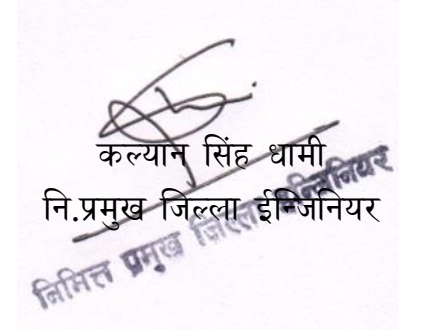 कल्यान सिंह धामी
नि.प्रमुख जिल्ला ईन्जिनियर
निमित्त प्रमुख जिल्ला इन्जिनियर